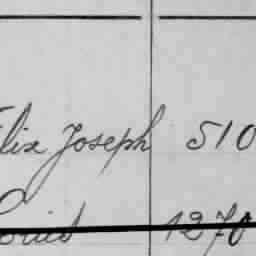 lix Joseph 510
Louis 1270